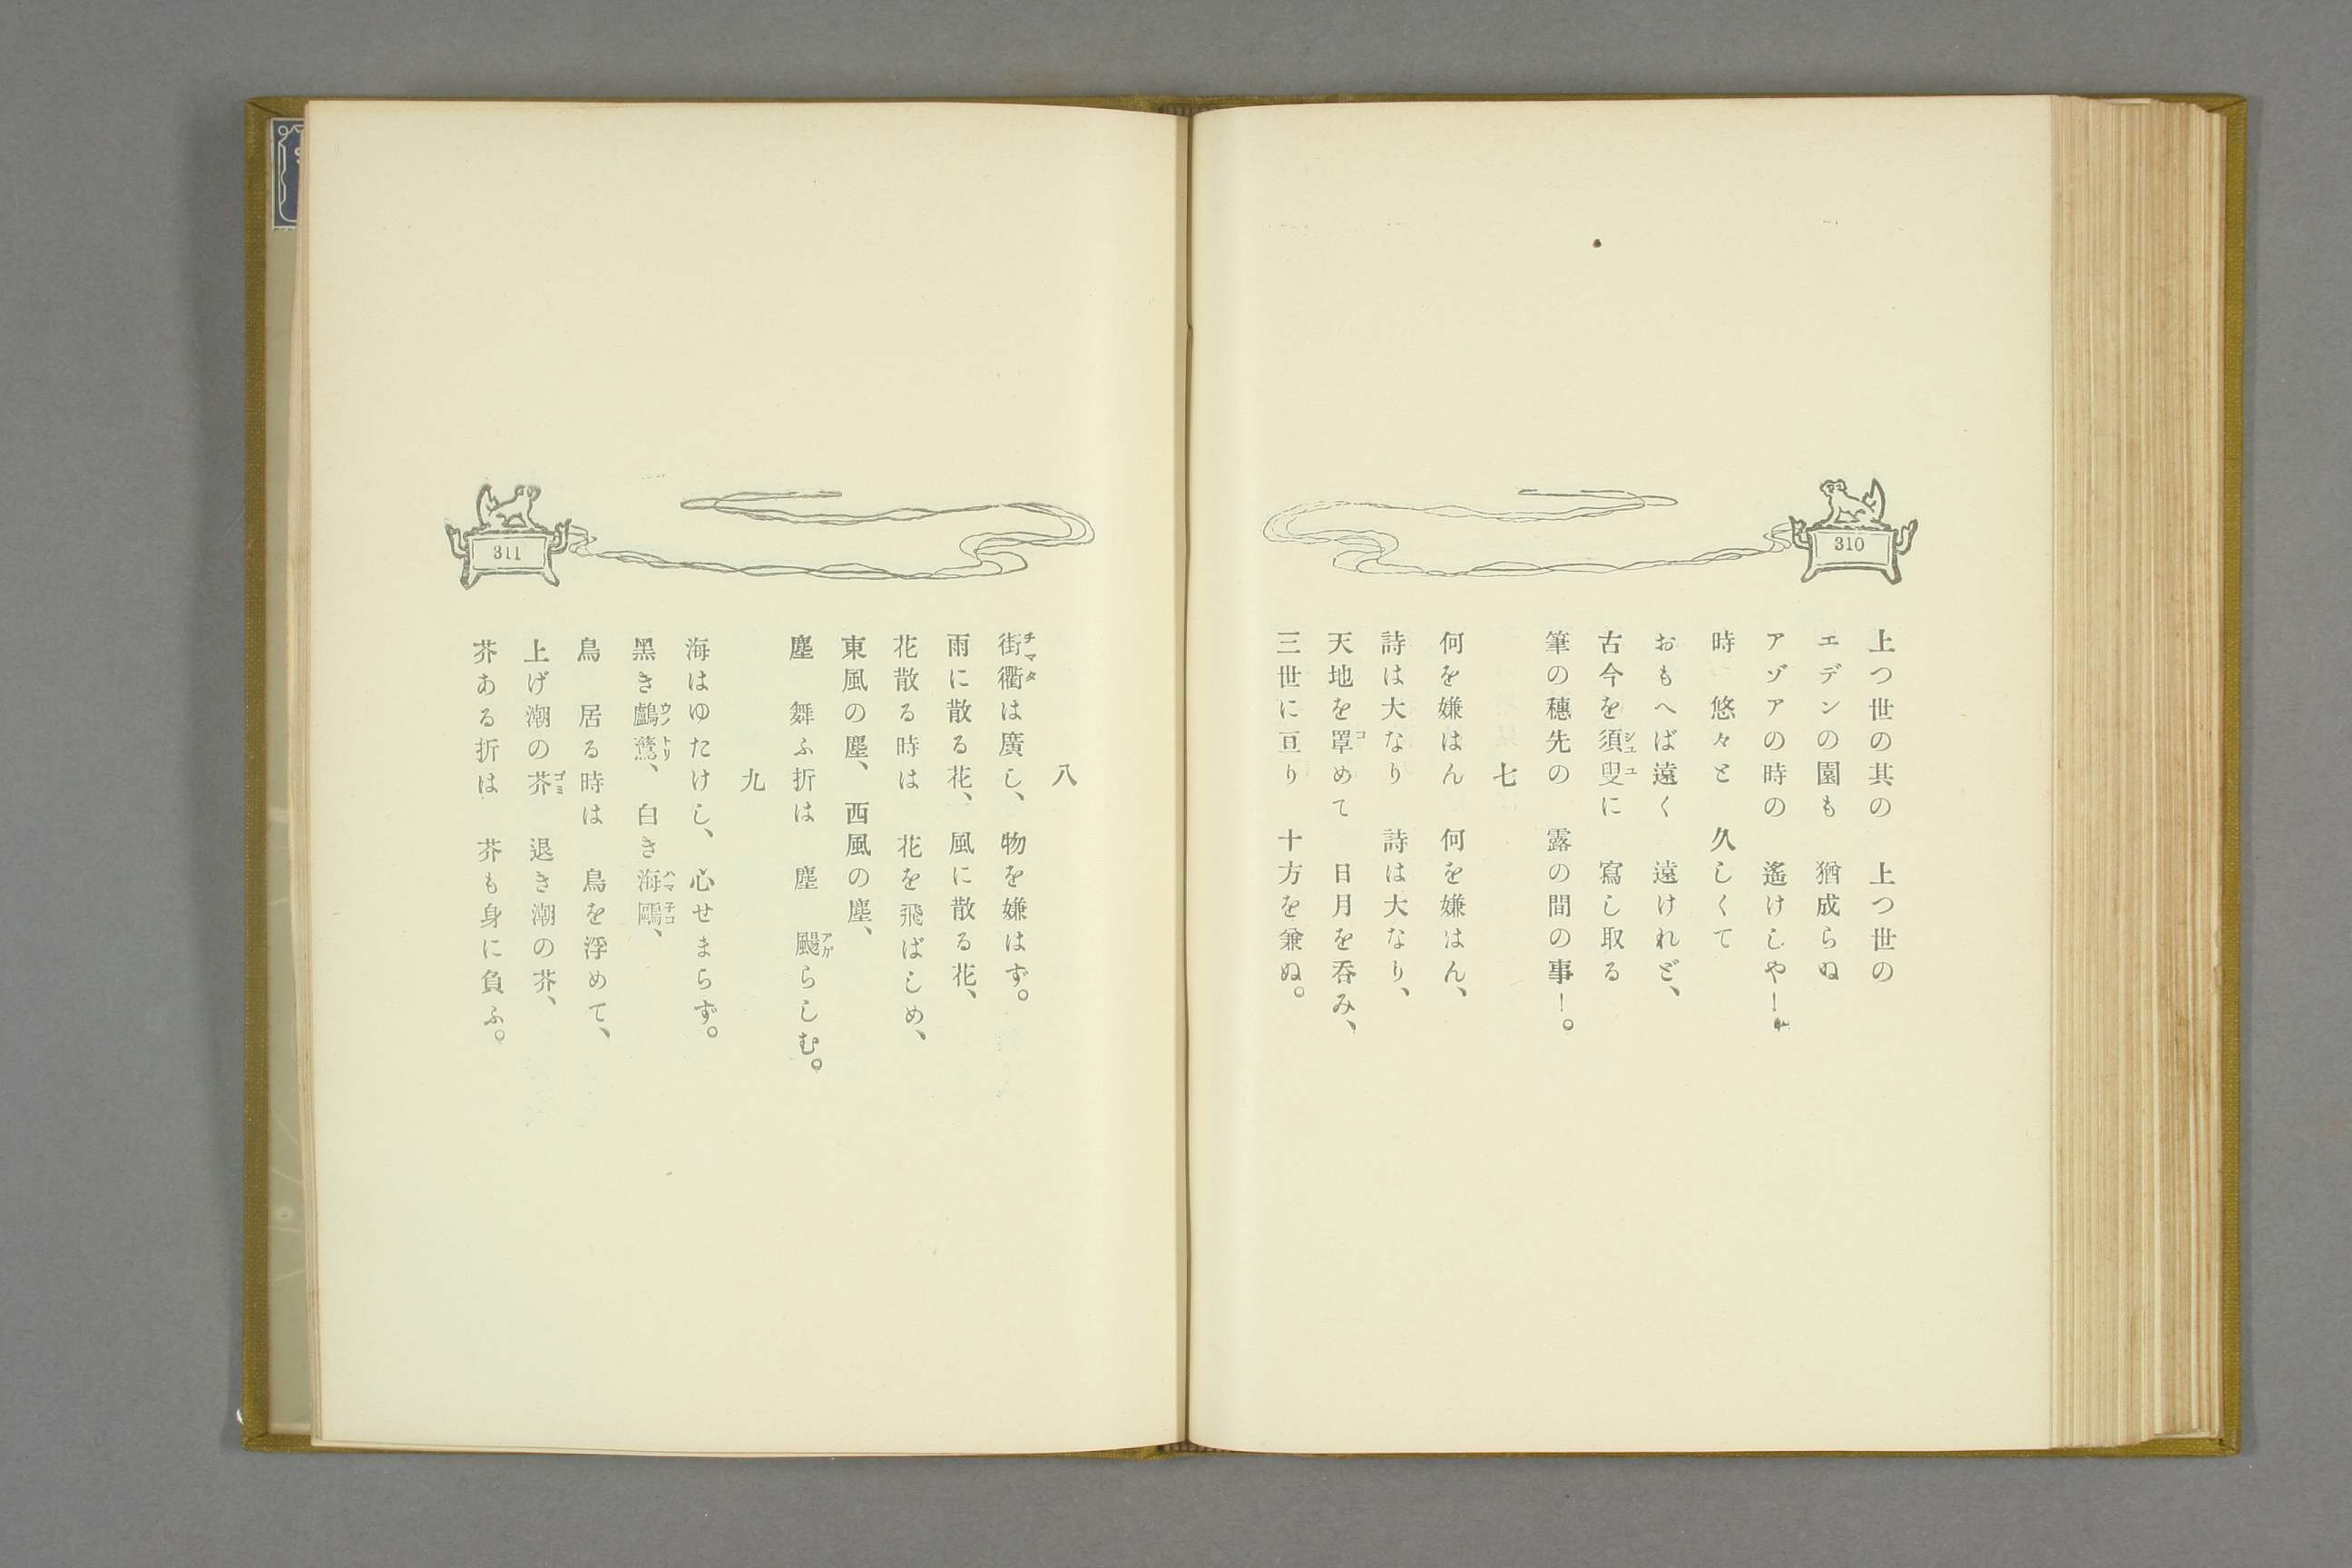 310
上つ世の其の　上つ世の
エデンの園も　猶成らぬ
アゾアの時の　遙けしや！
時　悠々と　久しくて
おもへば遠く　遠けれど、
古今を須臾に　寫し取る
筆の穗先の　露の間の事！。
七
何を嫌はん　何を嫌はん、
詩は大なり　詩は大なり、
天地を罩めて　日月を呑み、
三世に亘り　十方を兼ぬ。
311
八
街衢は廣し、物を嫌はず。
雨に散る花、風に散る花、
花散る時は　花を飛ばしめ、
東風の塵、西風の塵、
塵　舞ふ折は　塵　颺らしむ。
九
海はゆたけし、心せまらず。
黑き鸕鶿、白き海鷗、
鳥　居る時は　鳥を浮めて、
上げ潮の芥　退き潮の芥、
芥ある折は　芥も身に負ふ。